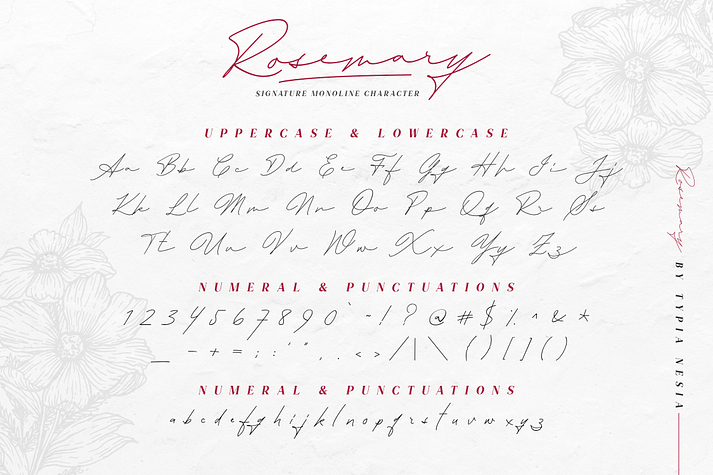 Rosemary
SIGNATURE MONOLINE CHARACTER
UPPERCASE & LOWERCASE
Aa Bb Cc Dd Ee Ff Gg Hh Ii Jj
Kk Ll Mm Nn Oo Pp Qq Rr Ss
Tt Uu Vv Ww Xx Yy Zz
NUMERAL & PUNCTUATIONS
1 2 3 4 5 6 7 8 9 0 ` ~ ! ? @ # $ % ^ & *
_ - + = ; : ' " , . < > / | \ ( ) [ ] { }
NUMERAL & PUNCTUATIONS
a b c d e f g h i j k l n o p q r s t u v w x y z
Rosemary BY TYPIA NESIA